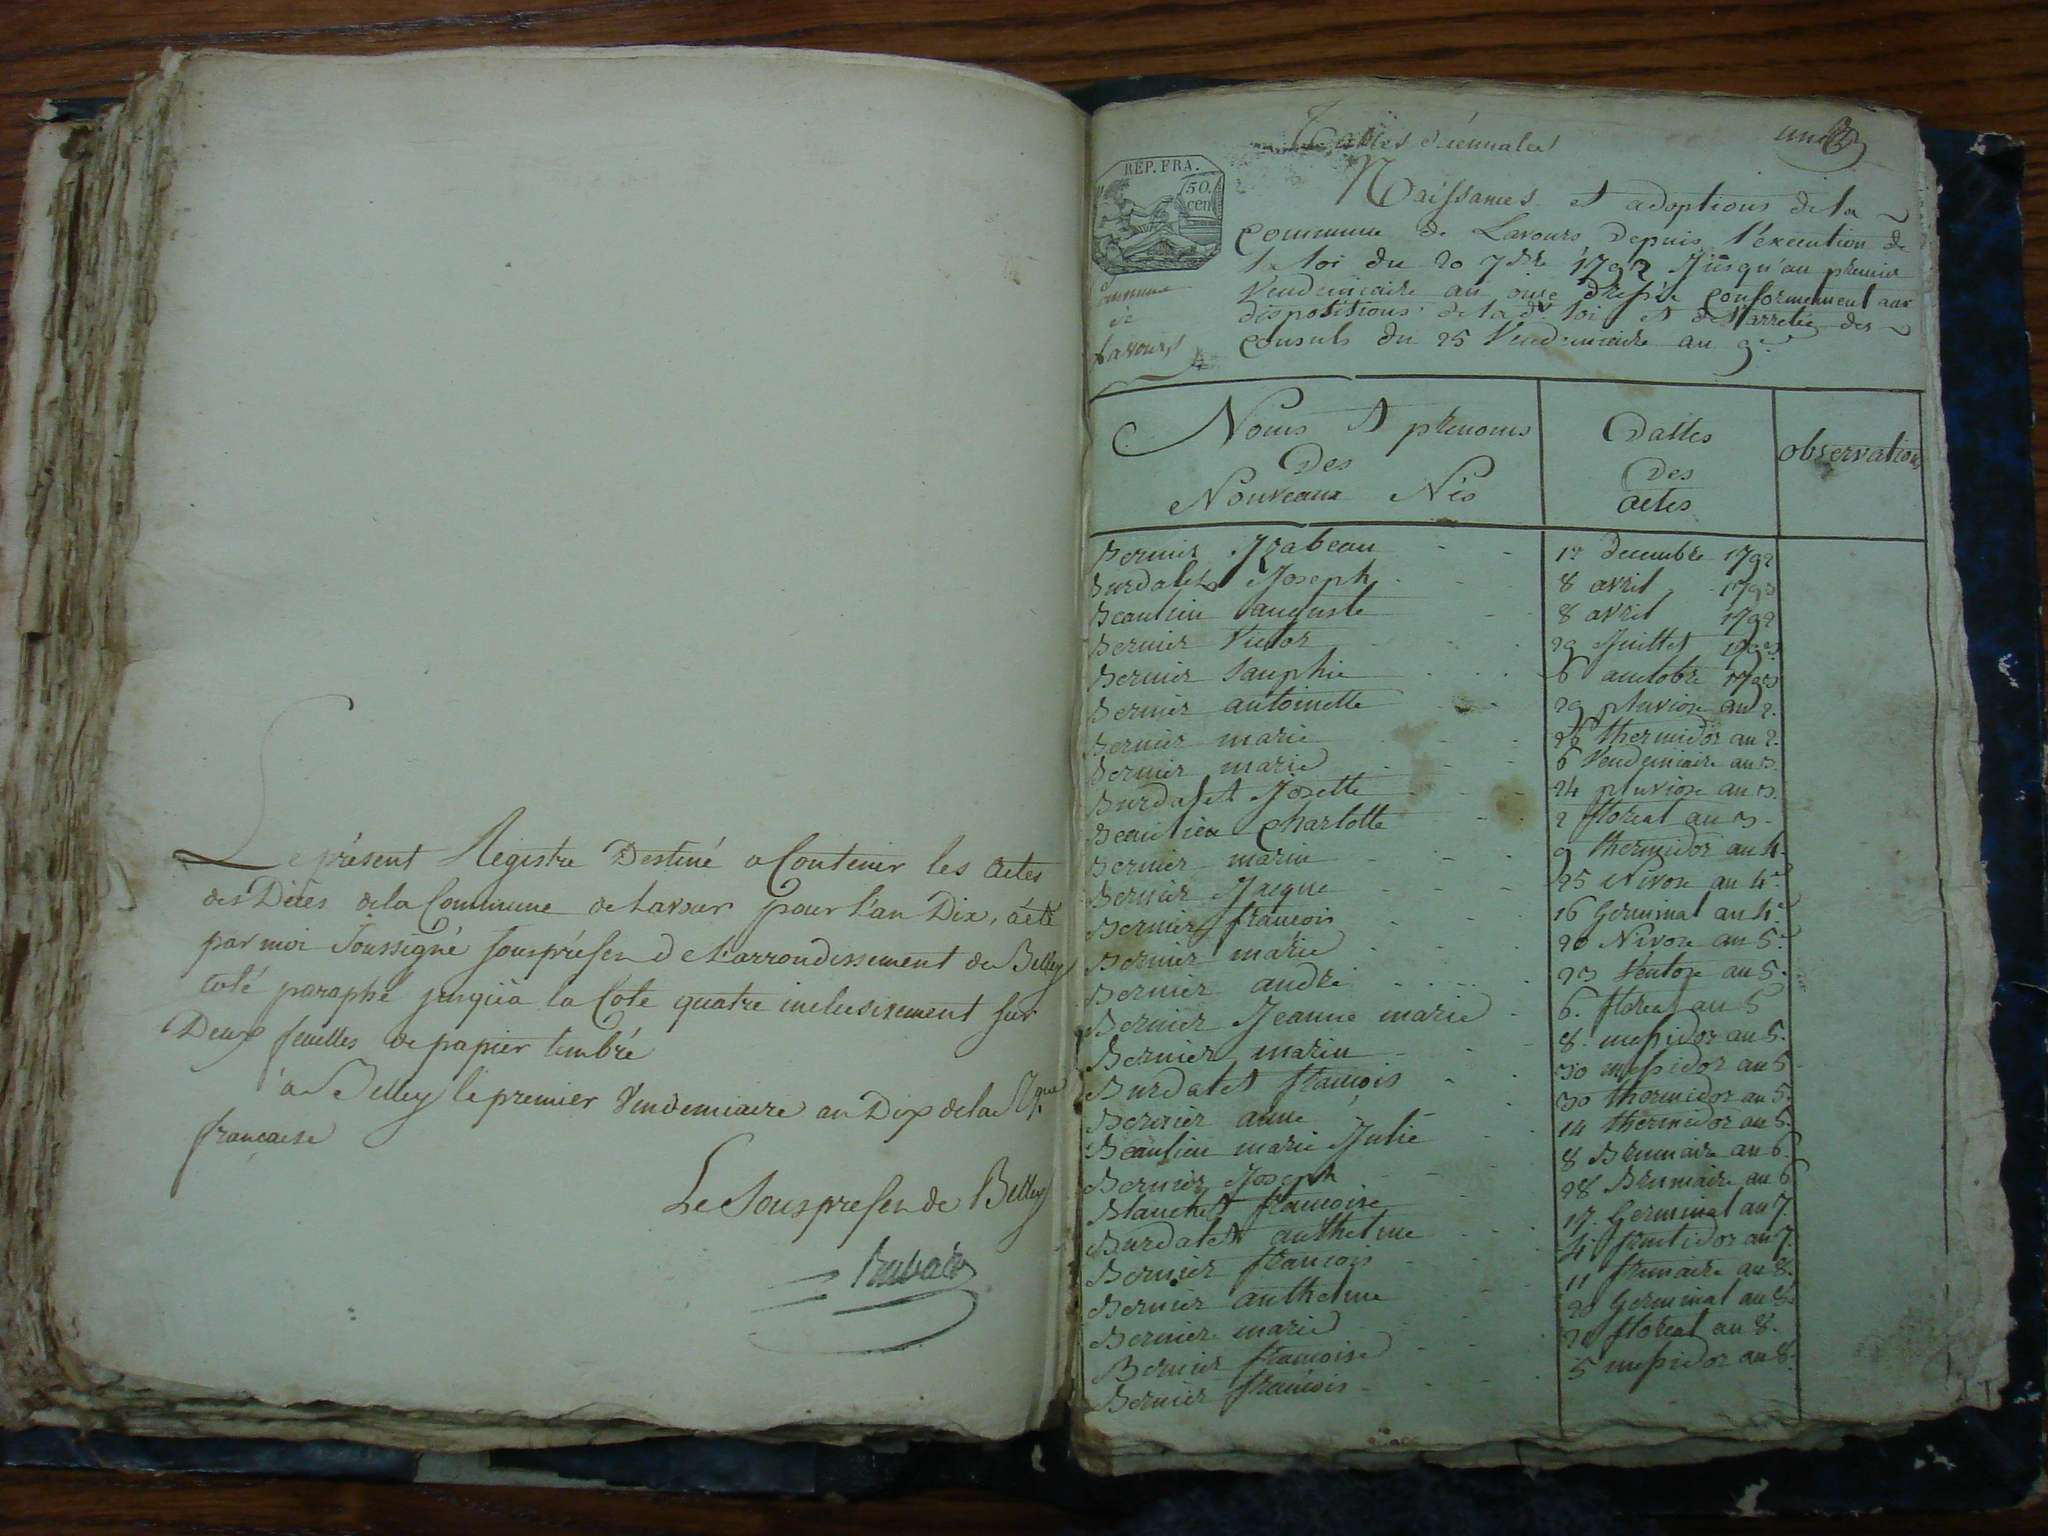 Le présent Registre Destiné a Contenir les actes
des Décès de la Commune de Lavour pour l'an Dix, a été
par moi Soussigné Souspréfet de l'arrondissement de Belley
coté paraphé jusqu'a la Cote quatre inclusivement sur
Deux feuilles de papier timbré
a Belley le premier Vendemiaire an Dix de la Rque
francaise
Le Souspréfet de Belley
Tables décennales
REP. FRA.
50.
cen
Commune
de
Lavours
Naissances et adoptions de la
Commune de Lavours Depuis l'execution de
la loi du 20 7bre 1792 Jusqu'au premier
Vendemiaire an onze Dressée Conformement aux
dispositions de la de loi et de l'arretée des
Consuls du 25 Vendemiaire an 9e
Noms et prenoms
Des
Nouveaux Nés
Dattes
Des
actes
observations
Bernier Izabeau 1er decembre 1792
Burdalet Joseph 8 avril 1793
Beaulieu auguste 8 avril 1792
Bernier Victor 29 Juillet 1793
Bernier Sauphie 6 auctobre 1793
Bernier antoinette 29 pluviose an 2.
Bernier marie thermidor an 2.
Bernier marie 6 Vendemiaire an 3.
Burdalet Josette 24 pluviose an 3.
Beaulieu Charlotte 2 floreal an 3
Bernier marin 9 thermidor an 4
Bernier Jacque 25 Nivose an 4e
Bernier francois 16 Germinal an 4e
Bernier marie 20 Nivose an 5.
Bernier andre 23 Ventose an 5.
Bernier Jeanne marie 6. floreal an 5
Bernier marin 8. messidor an 5.
Burdalet francois 30 messidor an 5
Bernier anne 30 thermidor an 5.
Beaulieu marie Julie 14 thermidor an 5.
Bernier Joseph 8 Brumaire an 6.
Blanchet francoise 28 Brumaire an 6
Burdalet anthelme 17. Germinal an 7.
Bernier francois 4 fructidor an 7.
Bernier anthelme 11 frimaire an 8.
Bernier marie 20 Germinal an 8
Bernier francoise floreal an 8.
Bernier francois 5 messidor an 8.